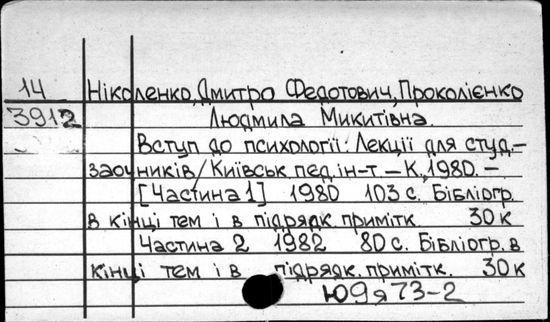 14 Ніколенко, Дмитро Федотович, Проколієнко
3912 Людмила Микитівна.
Вступ до психології: Лекції для студ.-
заочників/Київськ пед. ін-т. – К., 1980. –
[Частина 1] 1980 103 с. Бібліогр.
в кінці тем і в підрядк. примітк. 30 к
Частина 2 1982 80 с. Бібліогр. в
кінці тем і в підрядк. примітк. 30 к
Ю9я73-2